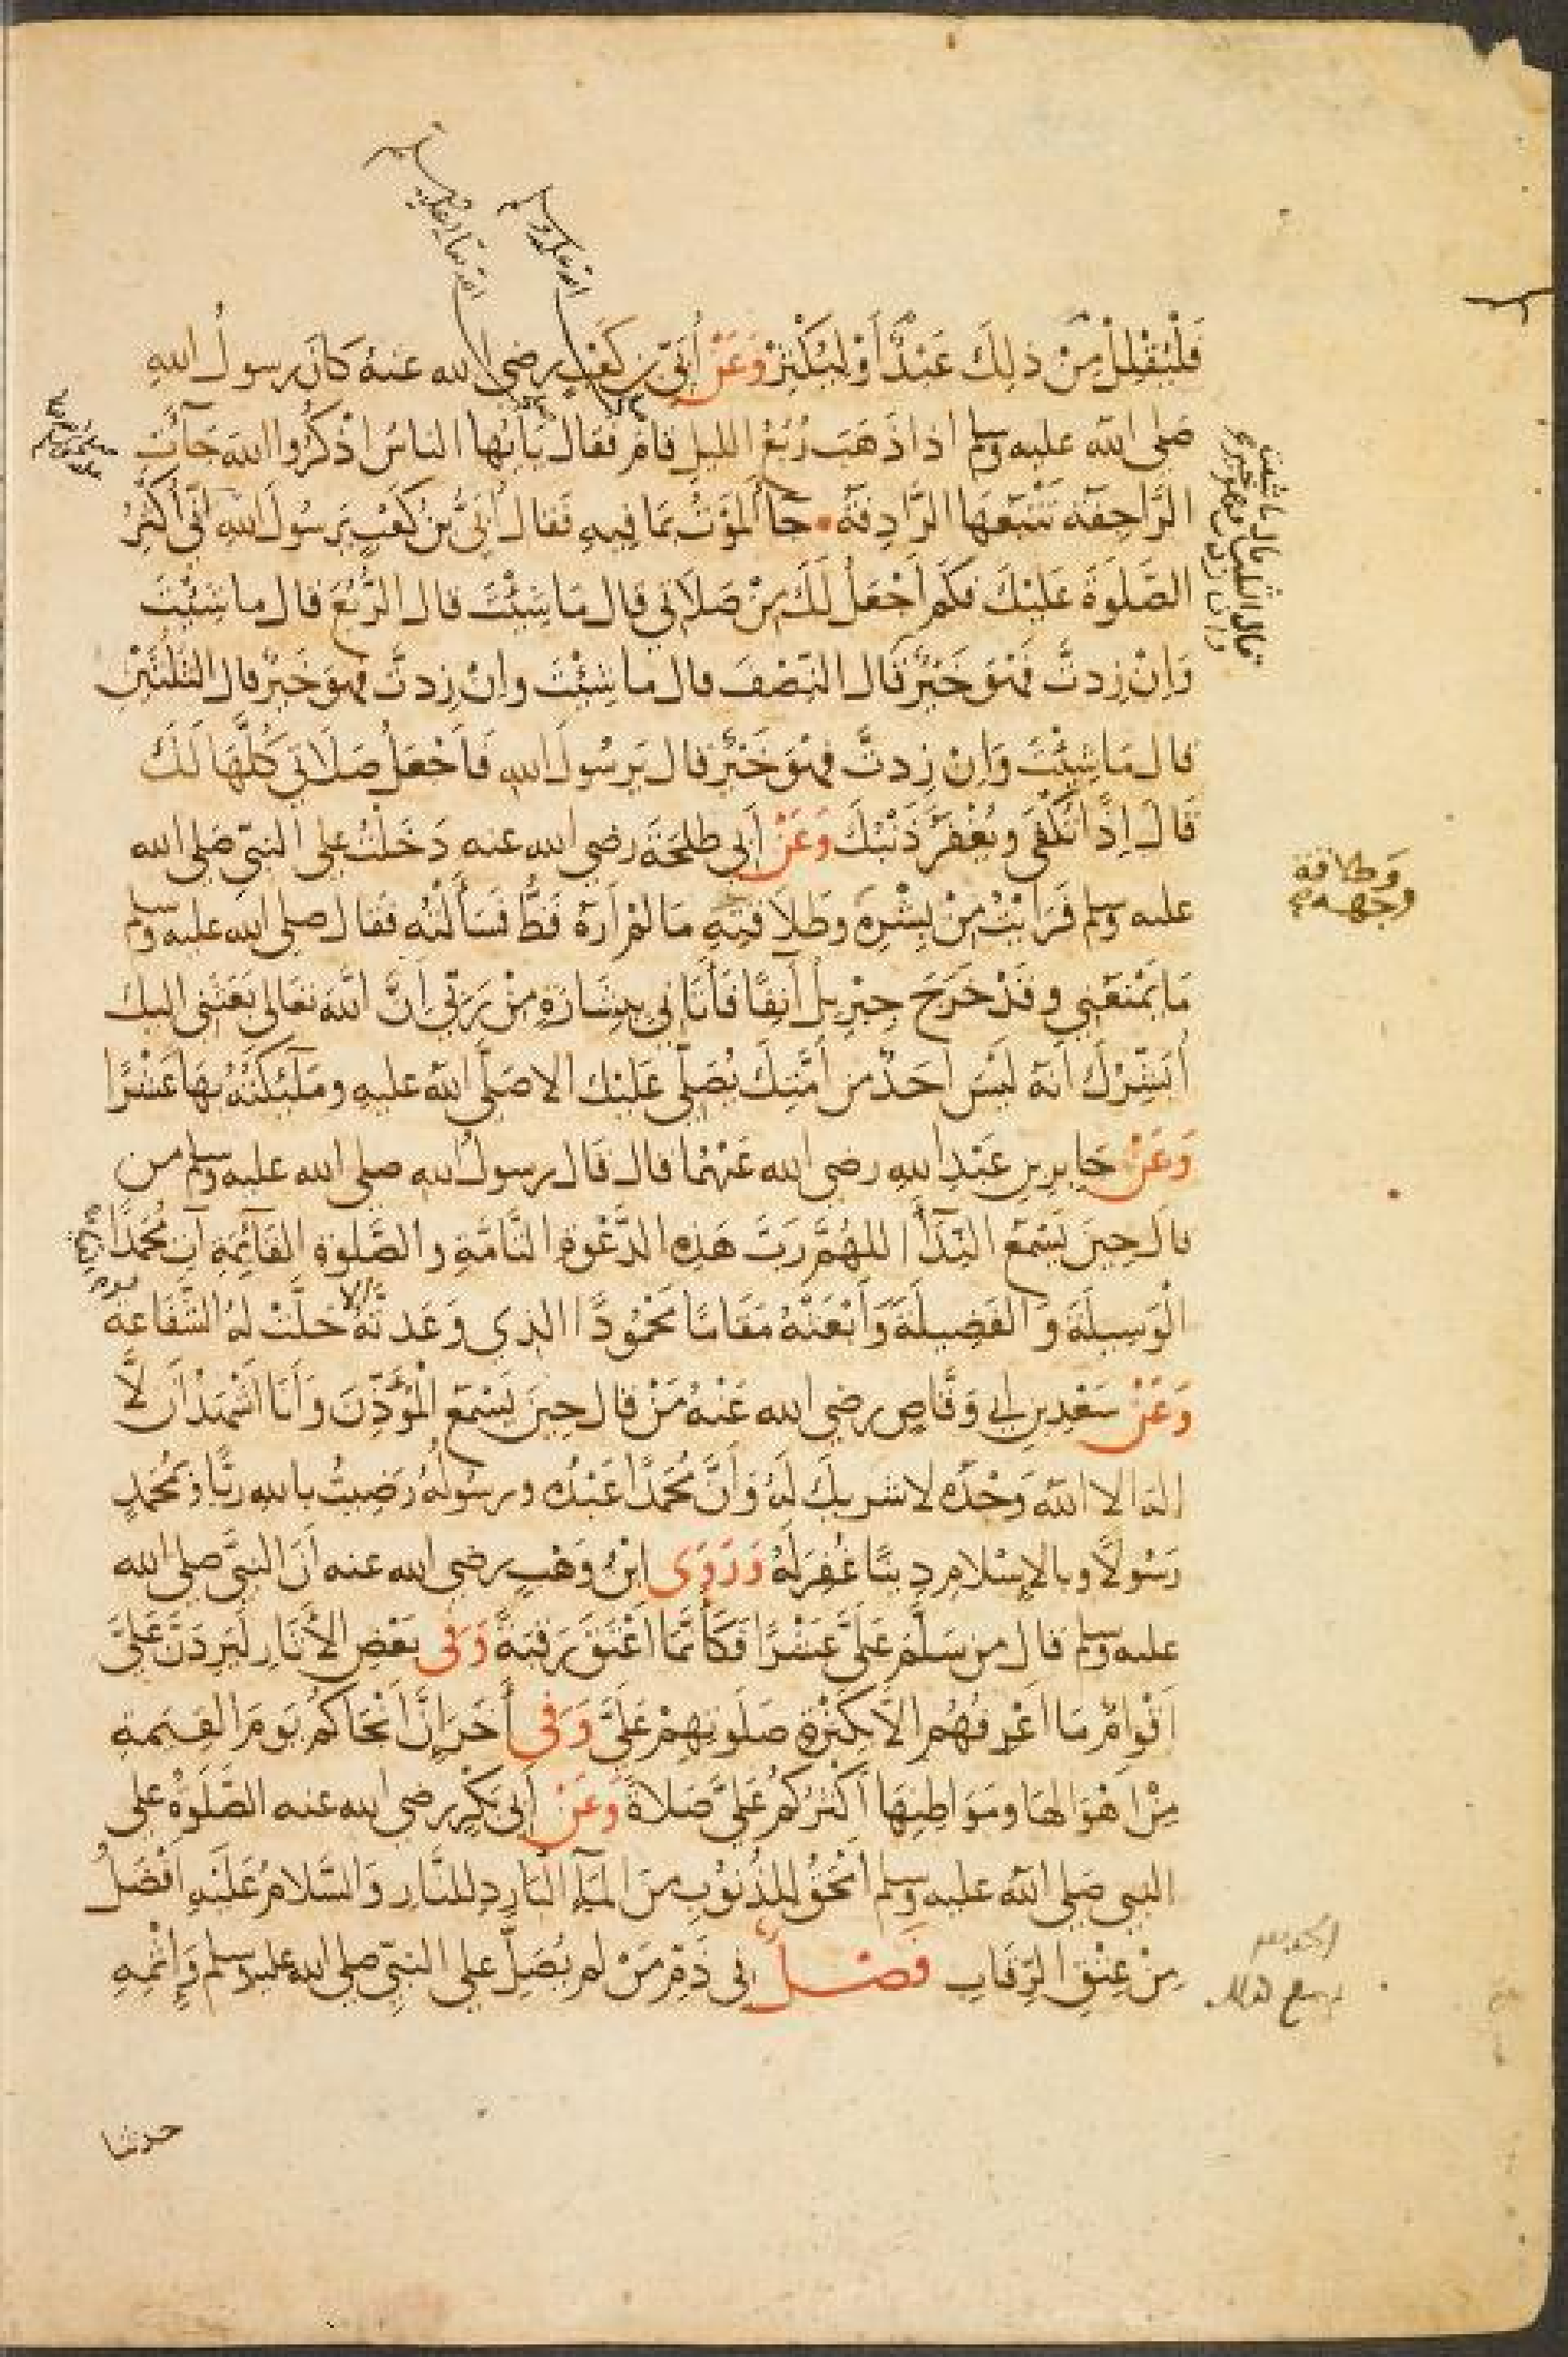 فَلْيُقْلِلْ مِنْ ذلِكَ عَبْدٌ أَوْ لِيُكْثِرْ وَعَنْ أُبَيِّ بنِ كَعْبٍ رضي الله عنهُ كَانَ رسولُ اللهِ
صَلى الله عليه وسلم اذا ذَهَبَ رُبُعُ الليلِ قامَ فَقال يَا يُّها الناسُ اذْكُرُوا اللهَ جَآءَتِ
الرَّاجِفَة تَتْبَعُهَا الرَّادِفَةُ جَآ الْمَوْتُ بمَا فِيهِ فَقال اُبَيُّ بْنُ كَعْبٍ يَرسُولَ اللهِ اِنِّي أُكْثِرُ
الصَّلٰوةَ عَلَيْكَ فكَم اَجْعَلُ لَكَ مِنْ صَلاَتي قال مَا شِيْتَ قال الرُّبُعَ قال ما شِيْتَ
وَاِنْ زِدتَّ فَهْوَ خَيْرٌ قَال النِّصْفَ قال ما شِيْتَ وانْ زِدتَّ فهوَ خَيْرٌ قال الثلُثَيْنِ
قال مَا شِيْتَ وَاِنْ زِدتَّ فهْوَ خَيْرٌ قال يَرسُولَ اللهِ فَاَجْعَلُ صَلاَتي كُلَّهَا لَكَ
قَالَ اِذًا تُكْفَى ويُغْفَرُ ذَنْبُكَ وَعَنْ أبي طلحَةَ رضي الله عنه دَخَلْتُ على النبيّ صَلى الله
عليه وسلم فَرَايْتُ مِنْ بِشْرِهِ وطَلاقَتِهِ مَا لَمْ اَرَهُ قَطُّ فَسَأَلْتُه فَقال صلى الله عليه وسلم
مَا يَمْنَعُنِي وقَدْ خَرَجَ جِبْرِيلُ آنِفًا فَأَتَانِي بِبِشَارَةٍ مِنْ رَبّي اِنَّ اللهَ تعَالى بَعَثَنِى اليك
أُبَشِّرُكَ اَنَّهُ لَيْسَ اَحَدٌ من أُمَّتِكَ يُصَلِّي عَلَيْك الا صَلَّى اللهُ عليه ومَلٰئِكَتُهُ بهَا عَشْرًا
وَعَنْ جَابرِ بنِ عَبْدِ اللهِ رضي الله عَنْهُمَا قال قَال رسولُ اللهِ صلى الله عليه وسلم من
قالَ حِينَ يَسْمَعُ النِّدَآءَ اللهُمَّ رَبَّ هَذِه الدَّعْوةِ التَّامَّةِ والصَّلوةِ القَآئِمَةِ آتِ مُحَمَّدًا
الْوَسِيلَةَ وَ الفَضِيلَةَ وَابْعَثْهُ مَقَامًا مَحْمُودًا الذِي وَعَدتَّهُ حَلَّتْ لهُ الشَّفَاعَةُ
وَعَنْ سَعْدِ بنِ ابي وَقَّاصٍ رضي الله عَنْهُ مَنْ قال حِينَ يَسْمَعُ الْمُؤَذِّنَ وَاَنَا اَشْهَدُ اَن لَّا
اله الا اللهُ وَحْدَهُ لا شريكَ لَهُ وَاَنَّ مُحَمَّدًا عَبْدُه ورسُولُهُ رَضِيتُ بالله رَبًّا وَبمُحَمَّدٍ
رَسُولاً وبالإسْلام دِينًا غُفِرَ لَهُ وَرَوَى ابْنُ وَهْبٍ رضي الله عنه اَنَّ النبيَّ صلى الله
عليه وسلم قال من سَلَّمَ عَلَيَّ عَشْرًا فَكَأَنَّمَا اَعْتَقَ رَقَبَةً وَفى بَعْضِ الآثَارِ لَيَرِدَنَّ عَلَيَّ
اَقْوَامٌ مَا اَعْرِفُهُم الاَّ بكَثْرَةِ صَلٰوتِهِمْ عَلَيَّ وَفى أخَرَ اِنَّ اَنْجَاكُم يَومَ القِيٰمةِ
مِنْ اَهْوَالهَا ومَوَاطِنِهَا اَكْثَرُكُم عَلَيَّ صَلاَةً وَعَنْ اَبى بَكْرٍ رضي الله عنه الصَّلٰوةُ على
النبي صَلى الله عليه وسلم اَمْحَقُ للذُنوُبِ منَ المَآءِ البَارِدِ للنَّارِ وَالسَّلامُ عَلَيْهِ اَفْضَلُ
مِنْ عِتْقِ الرِّقَابِ فَصْلٌ في ذَمِّ مَنْ لم يُصَلِّ على النبيّ صلى الله عليه وسلم وَاِثْمِهِ
وطلاقة
وجهه
حدثنا